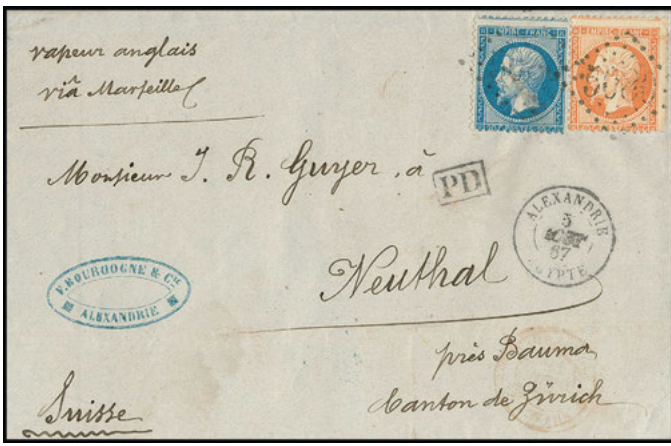 vapeur anglais
viâ Marseille
EMPIRE FRANC
EMPIRE FRANC
Monsieur J. R. Guyer, à
PD
ALEXANDRIE
5
67
Neuthal
F. BOURGOGNE & Cie
ALEXANDRIE
près Bauma
Canton de Zürich
Suisse